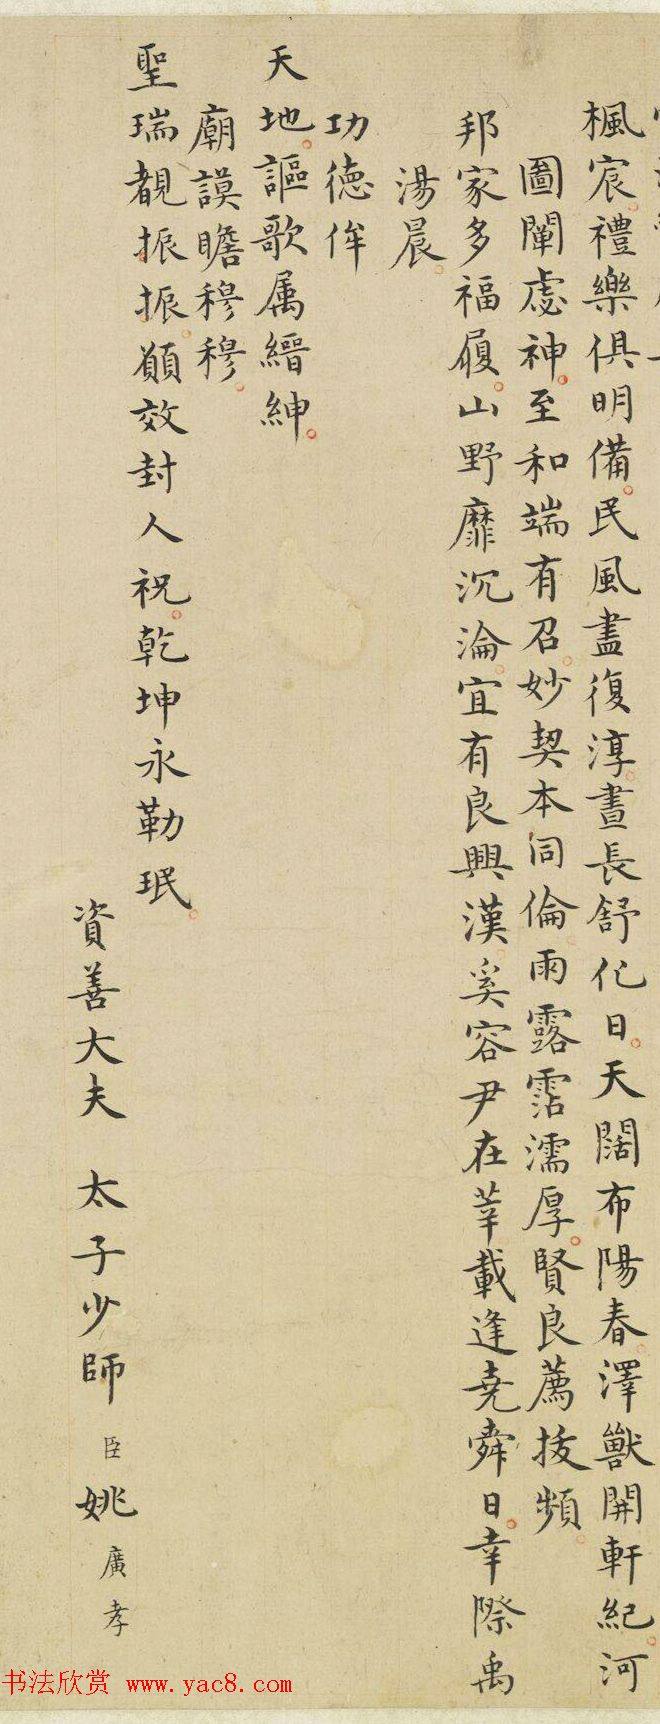 楓宸禮樂俱明備民風盡復淳晝長舒化日天闊布陽春澤獸開軒紀河
圖闡虙神至和端有召妙契本同倫雨露霑濡厚賢良薦拔頻
邦家多福履山野靡沉淪宜有良興漢奚容尹在莘載逢堯舜日幸際禹
湯晨
功德侔
天地謳歌属縉紳
廟謨瞻穆穆
聖瑞覩振振願效封人祝乾坤永勒珉
資善大夫 太子少師 臣 姚 廣孝
书法欣赏 www.yac8.com